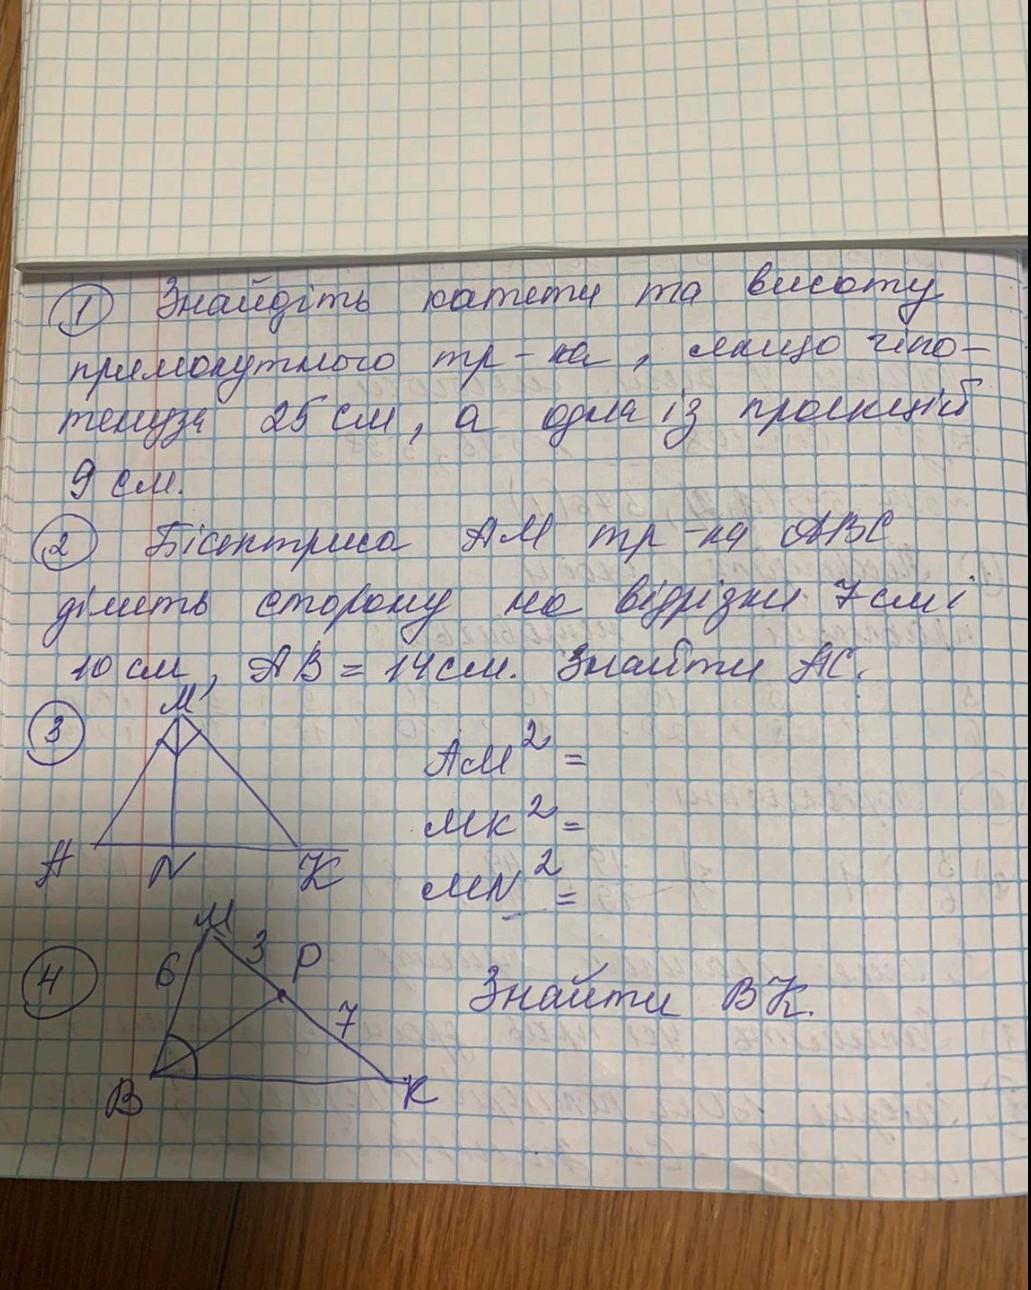 1 Знайдіть катети та висоту
прямокутного тр-ка, якщо гіпо-
тенуза 25 см, а одна із проекцій
9 см.
2 Бісектриса АМ тр-ка АВС
ділить сторону на відрізки 7 см і
10 см, АВ = 14 см. Знайти АС.
3
М
А N К
АМ² =
МК² =
МN² =
4
М
6 3 Р
7
В К
Знайти ВК.